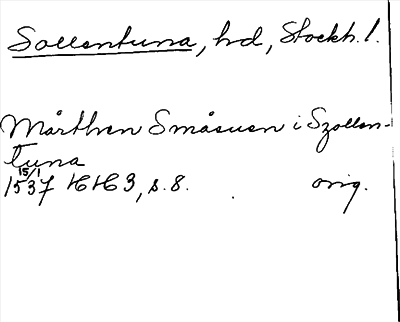 Sollentuna, hd, Stockh. l.
Mårthen Småsuen i Szollen-
tuna
15/1
1537 HH 3, s. 8. orig.